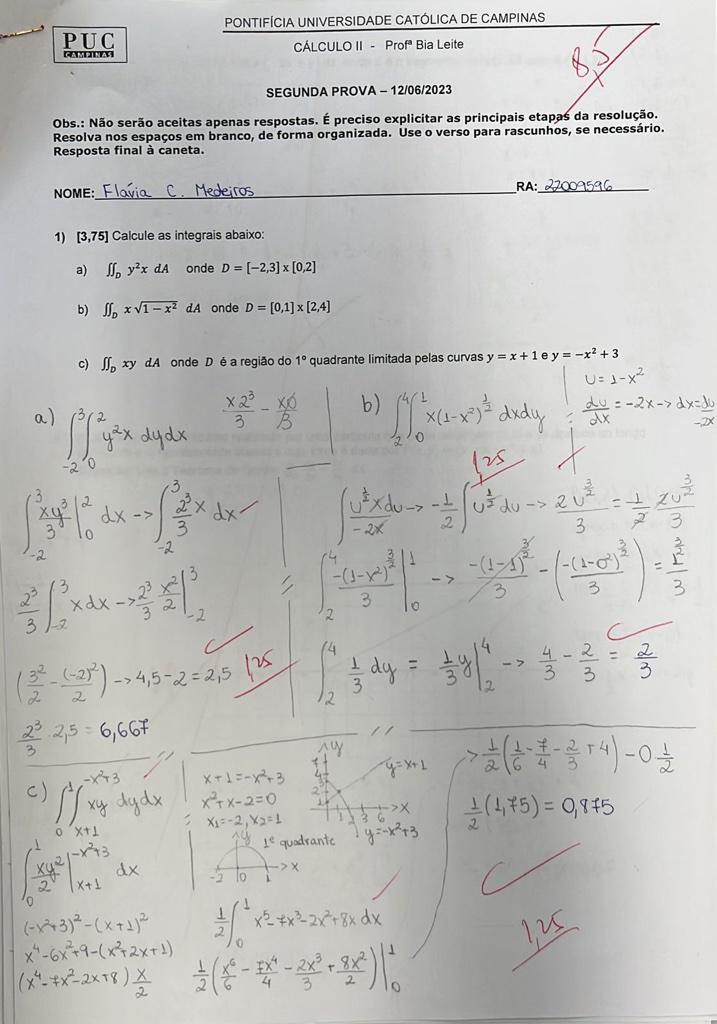 PUC
CAMPINAS
PONTIFÍCIA UNIVERSIDADE CATÓLICA DE CAMPINAS
CÁLCULO II - Profª Bia Leite
8,5
SEGUNDA PROVA – 12/06/2023
Obs.: Não serão aceitas apenas respostas. É preciso explicitar as principais etapas da resolução.
Resolva nos espaços em branco, de forma organizada. Use o verso para rascunhos, se necessário.
Resposta final à caneta.
NOME: Flávia C. Medeiros RA: 22009596
1) [3,75] Calcule as integrais abaixo:
a) ∬_D y²x dA onde D = [-2,3] x [0,2]
b) ∬_D x√(1 − x²) dA onde D = [0,1] x [2,4]
c) ∬_D xy dA onde D é a região do 1º quadrante limitada pelas curvas y = x + 1 e y = −x² + 3
a) ∫_{-2}^{3} ∫_0^2 y²x dydx
x2³/3 - x0/3
∫_{-2}^{3} xy³/3 |_0^2 dx -> ∫_{-2}^{3} 2³/3 x dx
2³/3 ∫_{-2}^{3} x dx -> 2³/3 x²/2 |_{-2}^{3}
(3²/2 - (-2)²/2) -> 4,5 - 2 = 2,5
1,25
2³/3 . 2,5 = 6,667
b) ∫_2^4 ∫_0^1 x(1-x²)^{1/2} dxdy
U = 1-x²
du/dx = -2x -> dx = du/-2x
1,25
∫ U^{1/2} x du/-2x -> -1/2 ∫ U^{1/2} du -> 2U^{3/2}/3 = -1/2 2U^{3/2}/3
∫_2^4 -(1-x²)^{3/2}/3 |_0^1 -> -(1-1)^{3/2}/3 - (-(1-0²)^{3/2}/3) = 1^{3/2}/3
∫_2^4 1/3 dy = 1/3 y |_2^4 -> 4/3 - 2/3 = 2/3
c) ∫_0^1 ∫_{x+1}^{-x²+3} xy dydx
∫_0^1 xy²/2 |_{x+1}^{-x²+3} dx
(-x²+3)² - (x+1)²
x⁴-6x²+9-(x²+2x+1)
(x⁴-7x²-2x+8) x/2
x+1 = -x²+3
x²+x-2=0
x₁=-2, x₂=1
y
y=x+1
x
y=-x²+3
y
1º quadrante
-2 0 1
x
1/2 ∫_0^1 x⁵-7x³-2x²+8x dx
1/2 (x⁶/6 - 7x⁴/4 - 2x³/3 + 8x²/2) |_0^1
> 1/2 (1/6 - 7/4 - 2/3 + 4) - 0 1/2
1/2 (1,75) = 0,875
1,25